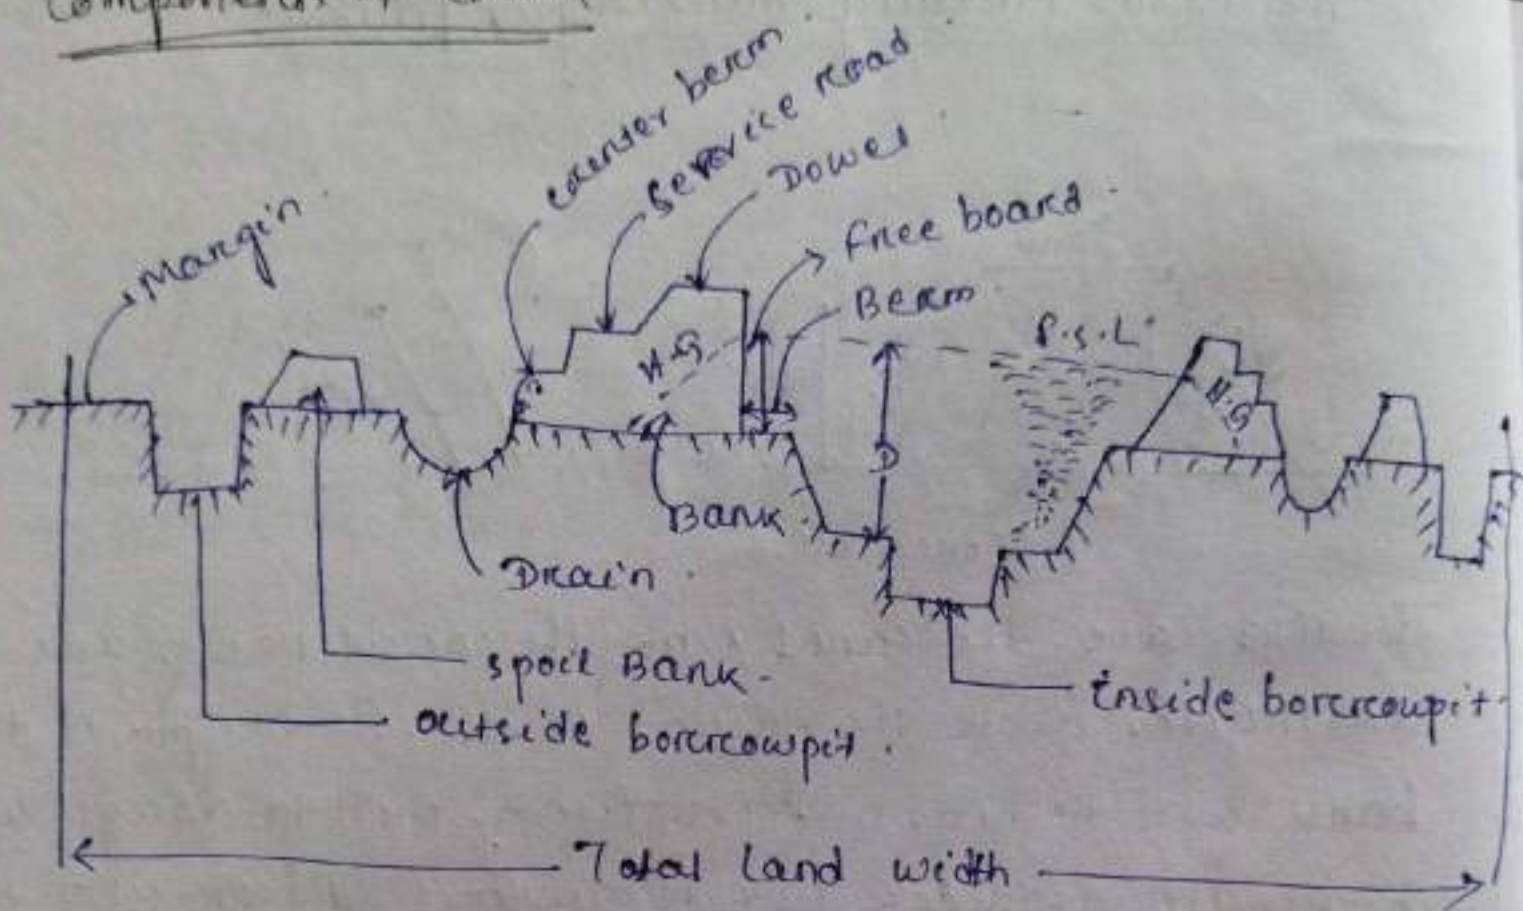 components of
counter berm
Service road
Dowel
Margin
free board
Berm
F.S.L
H.G
H.G
D
Bank
Drain
spoil Bank
outside borrowpit
inside borrowpit
Total land width